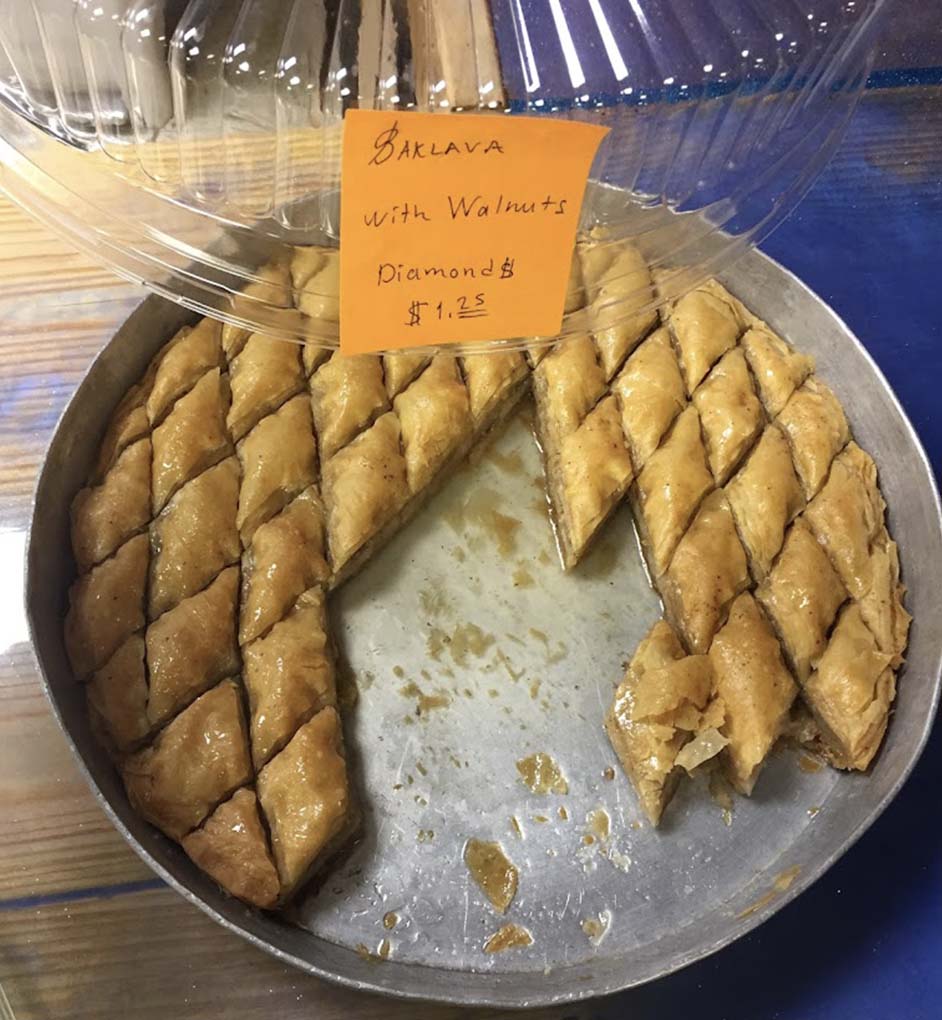 BAKLAVA
with Walnuts
Diamond$
$1.25